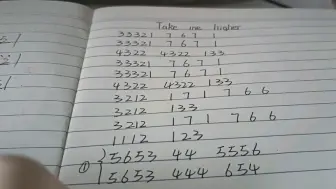 Take me higher
33321 7 6 7 1
33321 7 6 7 1
4322 4322 133
33321 7 6 7 1
33321 7 6 7 1
4322 4322 133
3212 1 7 1 7 6 6
3212 133
3212 1 7 1 7 6 6
1112 123
① 5653 44 5556
5653 444 654